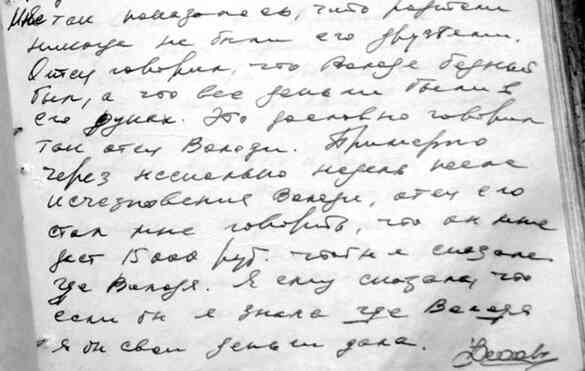 Мне так показалось, что родители
никогда не были его друзьями.
Отец говорил, что Володя бедный
был, а что все деньги были в
его руках. Это дословно говорил
так отец Володи. Примерно
через несколько недель после
исчезновения Володи, отец его
стал мне говорить, что он мне
даст 15000 руб. чтобы я сказала
где Володя. Я ему сказала, что
если бы я знала где Володя
я бы свои деньги дала.